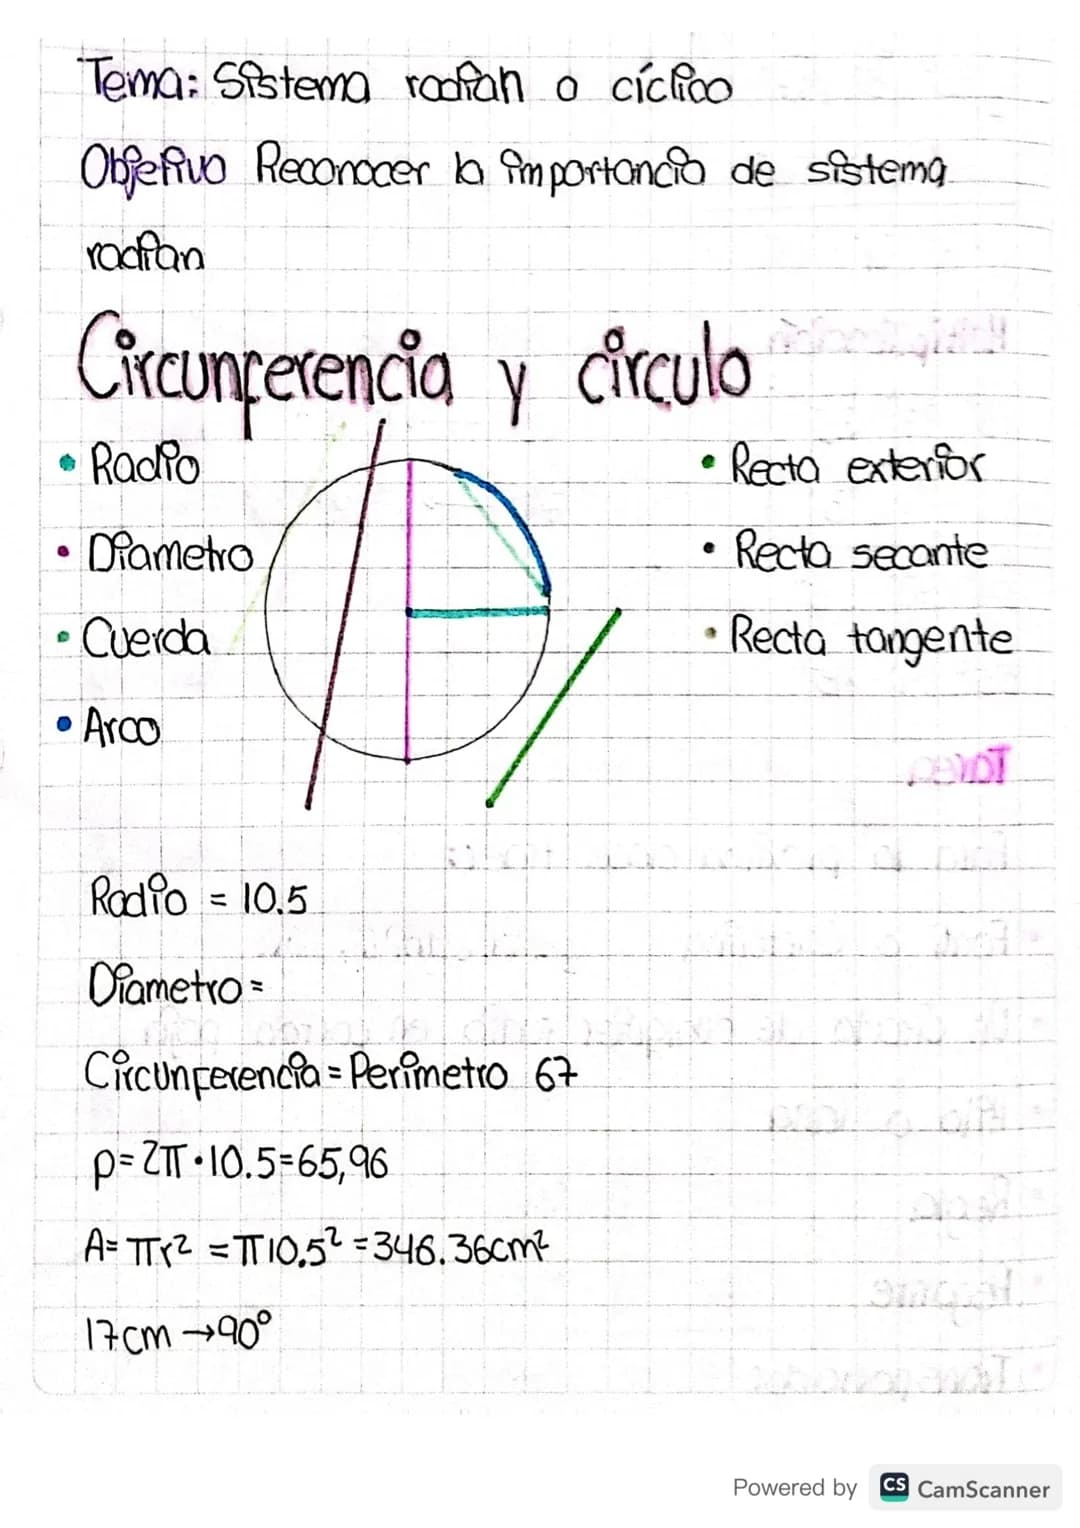 Tema: Sistema radian o cíclico
Objetivo Reconocer la importancia de sistema
radian
Circunferencia y circulo
• Radio
• Diametro
• Cuerda
• Arco
• Recta exterior
• Recta secante
• Recta tangente
Tarea
Radio = 10.5
Diametro =
Circunferencia = Perimetro 67
p= 2π • 10.5=65,96
A= πr² = π10.5² = 346.36cm²
17cm → 90°
Powered by CS CamScanner